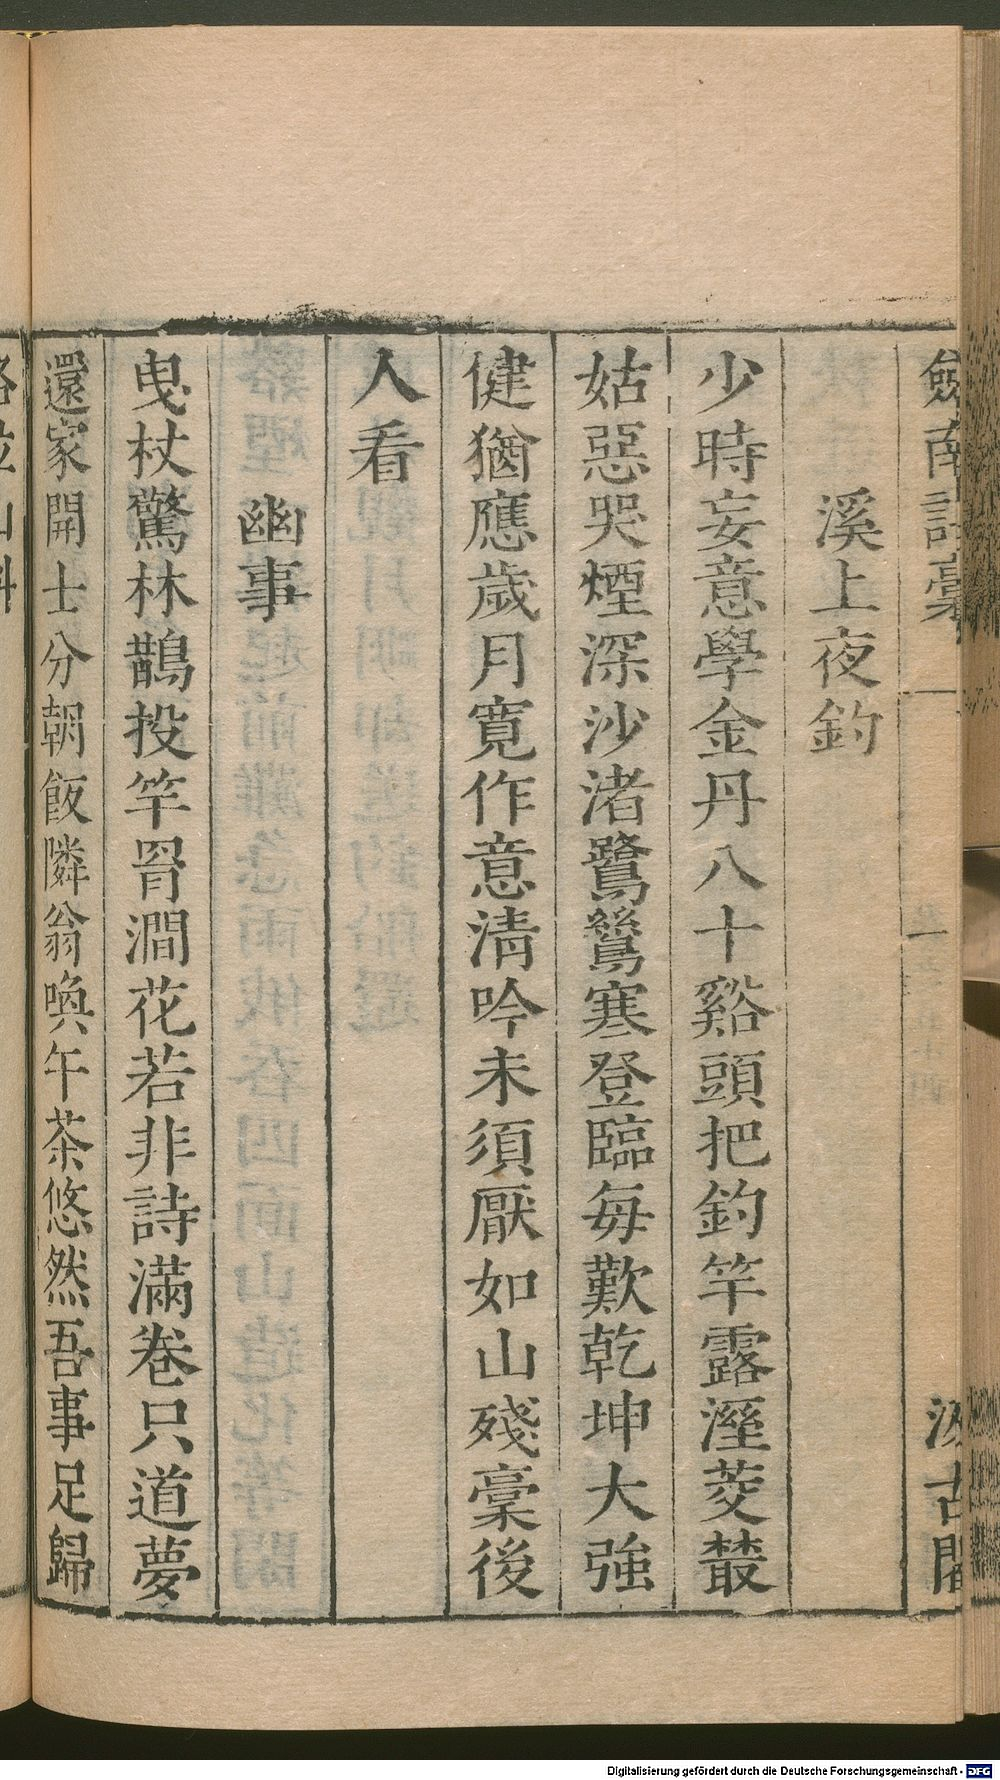 劔南詩藁
汲古閣
溪上夜釣
少時妄意學金丹八十谿頭把釣竿露溼茭叢
姑惡哭煙深沙渚鷺鷥寒登臨每歎乾坤大強
健猶應歲月寛作意淸吟未須厭如山殘稾後
人看
幽事
曳杖驚林鵲投竿罥澗花若非詩滿卷只道夢
還家開士分朝飯隣翁喚午茶悠然吾事足歸
Digitalisierung gefördert durch die Deutsche Forschungsgemeinschaft - DFG